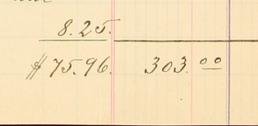 8.25.
$75.96. 303.00